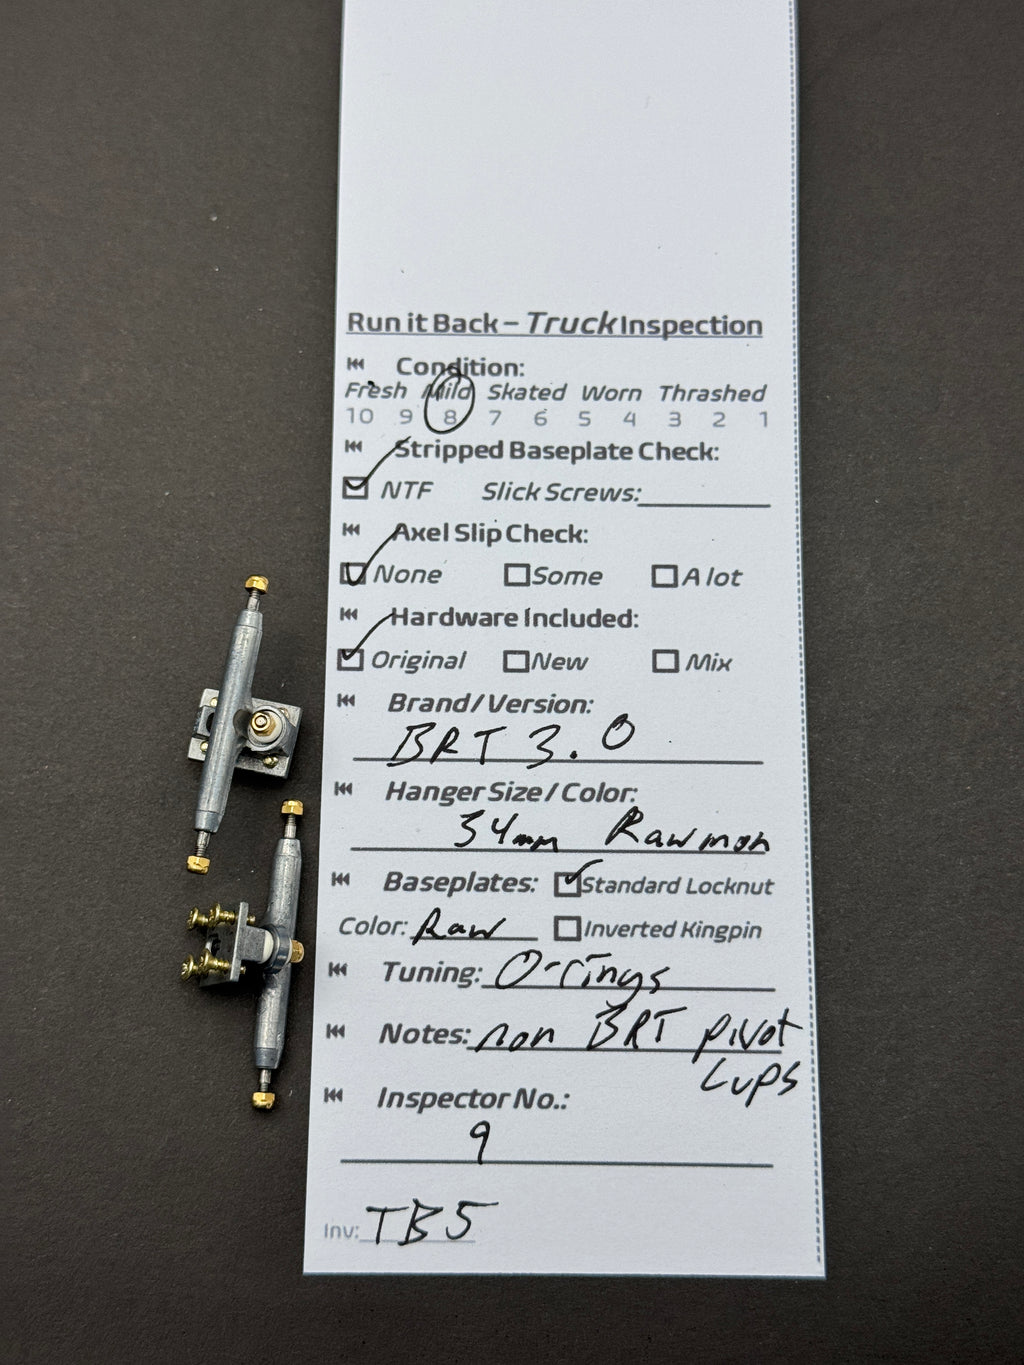 Run it Back – Truck Inspection
Condition:
Fresh Mild Skated Worn Thrashed
10 9 8 7 6 5 4 3 2 1
Stripped Baseplate Check:
NTF Slick Screws:
Axel Slip Check:
None Some A lot
Hardware Included:
Original New Mix
Brand/Version:
BRT 3.0
Hanger Size/Color:
34mm Raw mon
Baseplates: Standard Locknut
Color: Raw Inverted Kingpin
Tuning: O-rings
Notes: non BRT pivot
cups
Inspector No.:
9
Inv: TB5